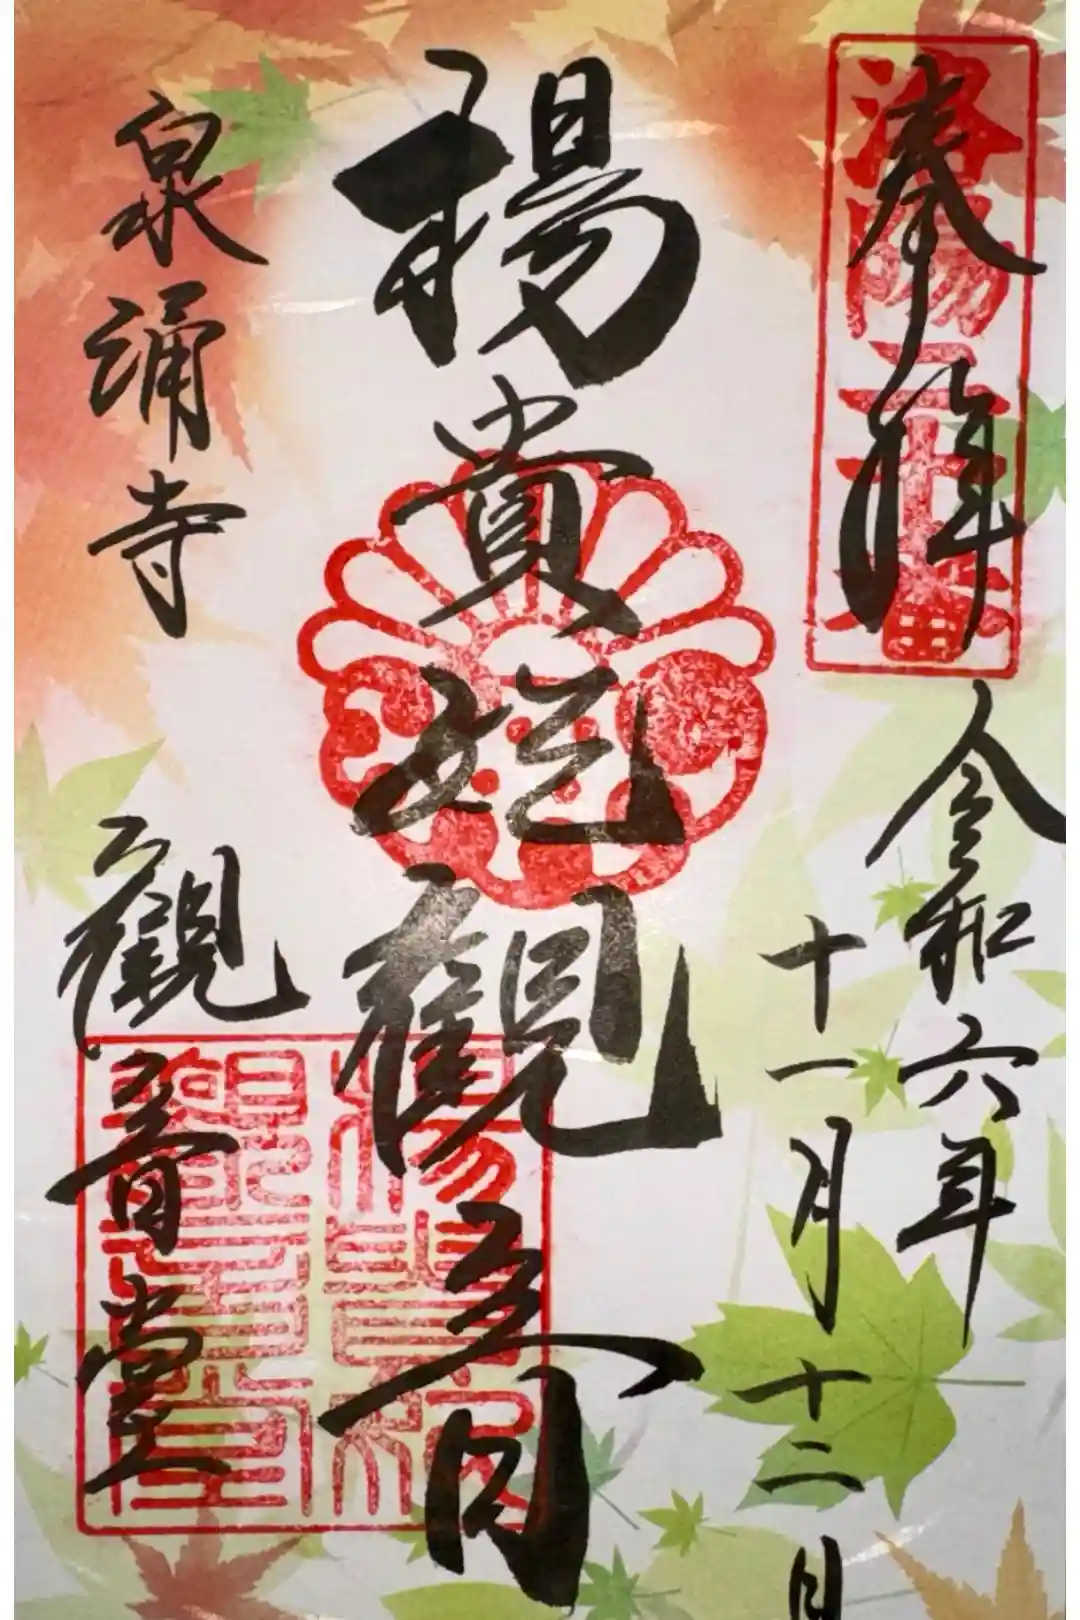 奉拝
洛陽二十番
令和六年
十一月十二日
楊貴妃觀音
泉涌寺
觀音堂
楊貴妃
觀音堂